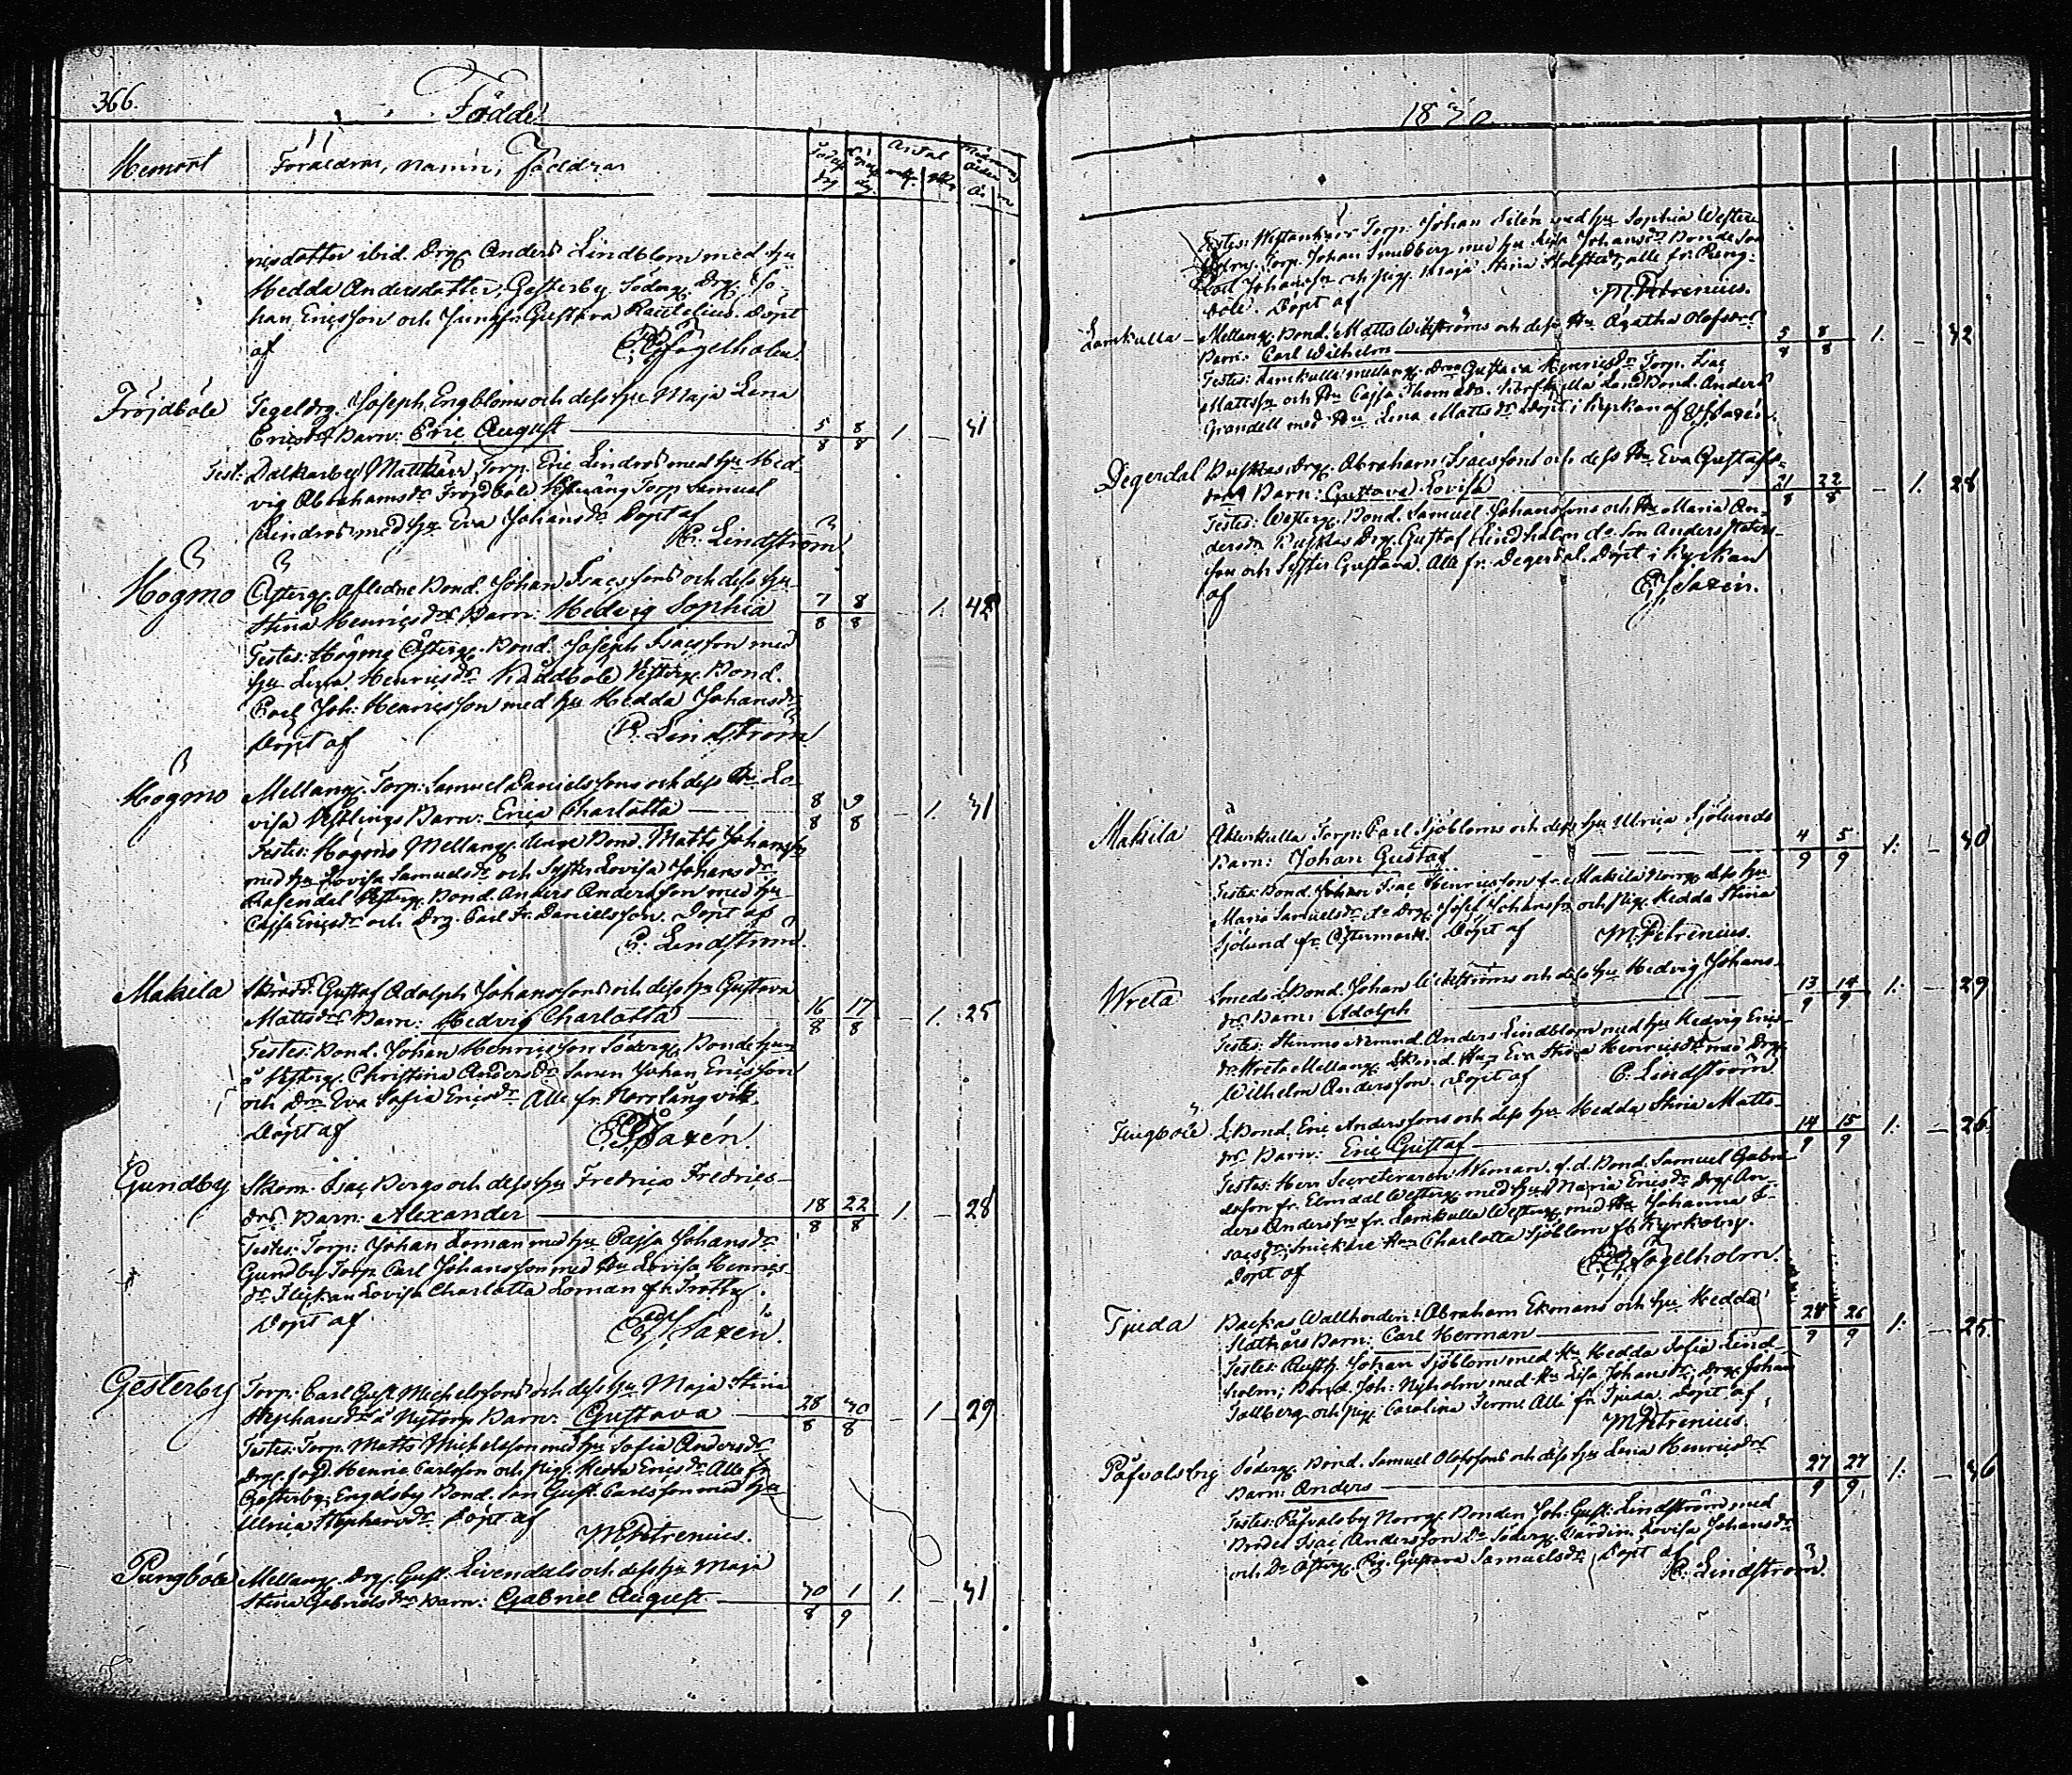 366.
Födde
Hemort Föräldrar, namn, Faddrar
Födelse dag
dop dag
Antal
Modrens ålder
risdotter ibid. Drg. Anders Lindblom med hu
Hedda Andersdotter, Gesterby Söderg. Drg. Jo-
han Ericsson och Jungfr. Gustava Rautelius. Döpt
af Fogelholm.
Fröjdböle Tegeldrg. Joseph Engbloms och dess hu Maja Lena
Ericsdrs Barn: Eric August 5/8 8/8 1. – 31
Test: Dalkarby Mattkärr, Torp. Eric Lindros med hu Hed-
vig Abrahamsdr Fröjdböle Torp. Samuel
Lindros med hu Eva Johansdr Döpt af
C. Lindström
Högmo Österg. Aflidne Bond. Johan Isacssons och dess hu
Stina Henricsdrs Barn: Hedvig Sophia 7/8 8/8 – 1. 42
Testes: Högmo Österg. Bond. Joseph Isacsson med
hu Lena Henricsdr Råddböle Vesterg. Bond.
Carl Joh: Henricsson med hu Hedda Johansdr
Döpt af C. Lindström
Högmo Mellang. Torp: Samuel Danielssons och dess Hu Lo-
visa Westlings Barn: Erica Charlotta 8/8 9/8 – 1. 31
Testes: Högmo Mellang. Unge Bond. Matts Johansson
med hu Lovisa Samuelsdr och Syster Lovisa Johansdr
Rosendal Vesterg. Bond. Anders Andersson med hu
Cajsa Ericsdr och Drg. Carl Fr. Danielsson. Döpt af
C. Lindström.
Makila Gustaf Adolph Johanssons och dess hu Gustava
Mattsdrs Barn: Hedvig Charlotta 16/8 17/8 – 1. 25
Testes: Bond. Johan Henricsson Söderg. Bondehu
å Vesterg. Christina Andersdr Sonen Johan Ericsson
och Drn Eva Sofia Ericsdr Alle fr. Norrlångvik.
Döpt af Saxén
Gundby Skom. Isac Bergs och dess hu Fredrica Fredrics-
drs Barn: Alexander 18/8 22/8 1. – 28
Testes: Torp: Johan Loman med hu Cajsa Johansdr
Gundby Torp. Carl Johansson med Hu Lovisa Henrics-
dr Flickan Lovisa Charlotta Loman fr. Trotby.
Döpt af Saxén.
Gesterby Torp: Carl Gust. Michelssons och dess hu Maja Stina
Stephansdrs å Nytorp Barn: Gustava 28/8 30/8 – 1. 29
Testes: Torp. Matts Michelsson med hu Sofia Andersdr
Drg. Henric Carlsson och Pig. Hedda Ericsdr Alle fr.
Gesterby; Engelsby Bond. Son Gust. Carlsson med hu
Ulrica Stephansdr Döpt af
M. Petrenius.
Pungböle Mellang. Drg. Gust. Livendals och dess hu Maja
Stina Gabrielsdrs Barn: Gabriel August 30/8 1/9 1. – 31
1830
Testes: Westankärr Torp. Johan Silén med hu Sophia Wester
Torp. Johan Sundberg med hu Lisa Johansdr Bonde Son
Carl Johansson och Pig. Maja Stina alle fr. Pung-
böle. Döpt af M. Petrenius.
Lamkulla Mellang. Bond. Matts Wikströms och dess Hu Agatha Olofsdrs
Barn: Carl Wilhelm 5/8 8/8 1. – 32
Testes: Lamkulla mellang. Drn Gustava Henricsdr Torp. Isac
Mattsson och Hu Cajsa Thomasdr. Land Bond. Anders
Grandell med Hu Lena Mattsdr Döpt i kyrkan af Saxén.
Degerdal Buskas Drg. Abraham Isacssons och dess Hu Eva Gustafs-
drs Barn: Gustava Lovisa 21/8 22/8 – 1. 28
Testes: Westerg. Bond. Samuel Johanssons och Hu Maria An-
dersdr Buskas Drg. Gustaf Lindholm do. Son Anders Peters-
son och Syster Gustava. Alle fr. Degerdal. Döpt i kyrkan
af Saxén.
Makila Åkerkulla Torp: Carl Sjöbloms och dess hu Ulrica Sjölunds
Barn: Johan Gustaf 4/9 5/9 1: – 30
Testes: Bond. Johan Isac Henricsson fr. Makila Norrg. dess hu
Maria Samuelsdr do Drg. Josef Johansson och Pig. Hedda Stina
Sjölund fr. Östermark. Döpt af M. Petrenius.
Wreta Smeds LBond. Johan Wickströms och dess hu Hedvig Johans-
drs Barn: Adolph 13/9 14/9 1: – 29
Testes: Stenmo Anders Lindblom med hu Hedvig Erics-
dr Wreta Mellang. Eva Stina Henricsdr med Drg.
Wilhelm Andersson. Döpt af C. Lindström
Pungböle LBond. Eric Anderssons och dess hu Hedda Stina Matts-
drs Barn: Eric Gustaf 14/9 15/9 1: – 26.
Testes: Herr Secreteraren Neman. f.d. Bond. Samuel Gabri-
elsson fr. Elmdal Westerg. med hu Maria Ericsdr Drg. An-
ders Andersson fr. Lamkulla Westerg. med Hu Johanna I-
sacsdr; Snickare Hu Charlotta Sjöblom fr. Kyrkoby.
Döpt af Fogelholm.
Tjuda Backas Wallhorden: Abraham Ekmans och hu Hedda
Slätkårs Barn: Carl Herman 24/9 26/9 1: – 25.
Testes: Johan Sjöblom med Hu Hedda Sofia Lind-
holm; Bond. Joh: Nyholm med Hu Lisa Johansdr; Drg. Johan
Tallberg och pig. Carolina Alle fr. Tjuda. Döpt af
M. Petrenius.
Påfvalsby Söderg. Bond. Samuel Olofssons och dess hu Lena Henricsdrs
Barn: Anders 27/9 27/9 1: – 36
Testes: Påfvalsby Norrg. Bonden Joh: Gust: Lindström med
Broder Isac Andersson Do Söderg. Värdin. Lovisa Johansdr
och Do Österg. Pig. Gustava Samuelsdr Döpt af
C. Lindström.